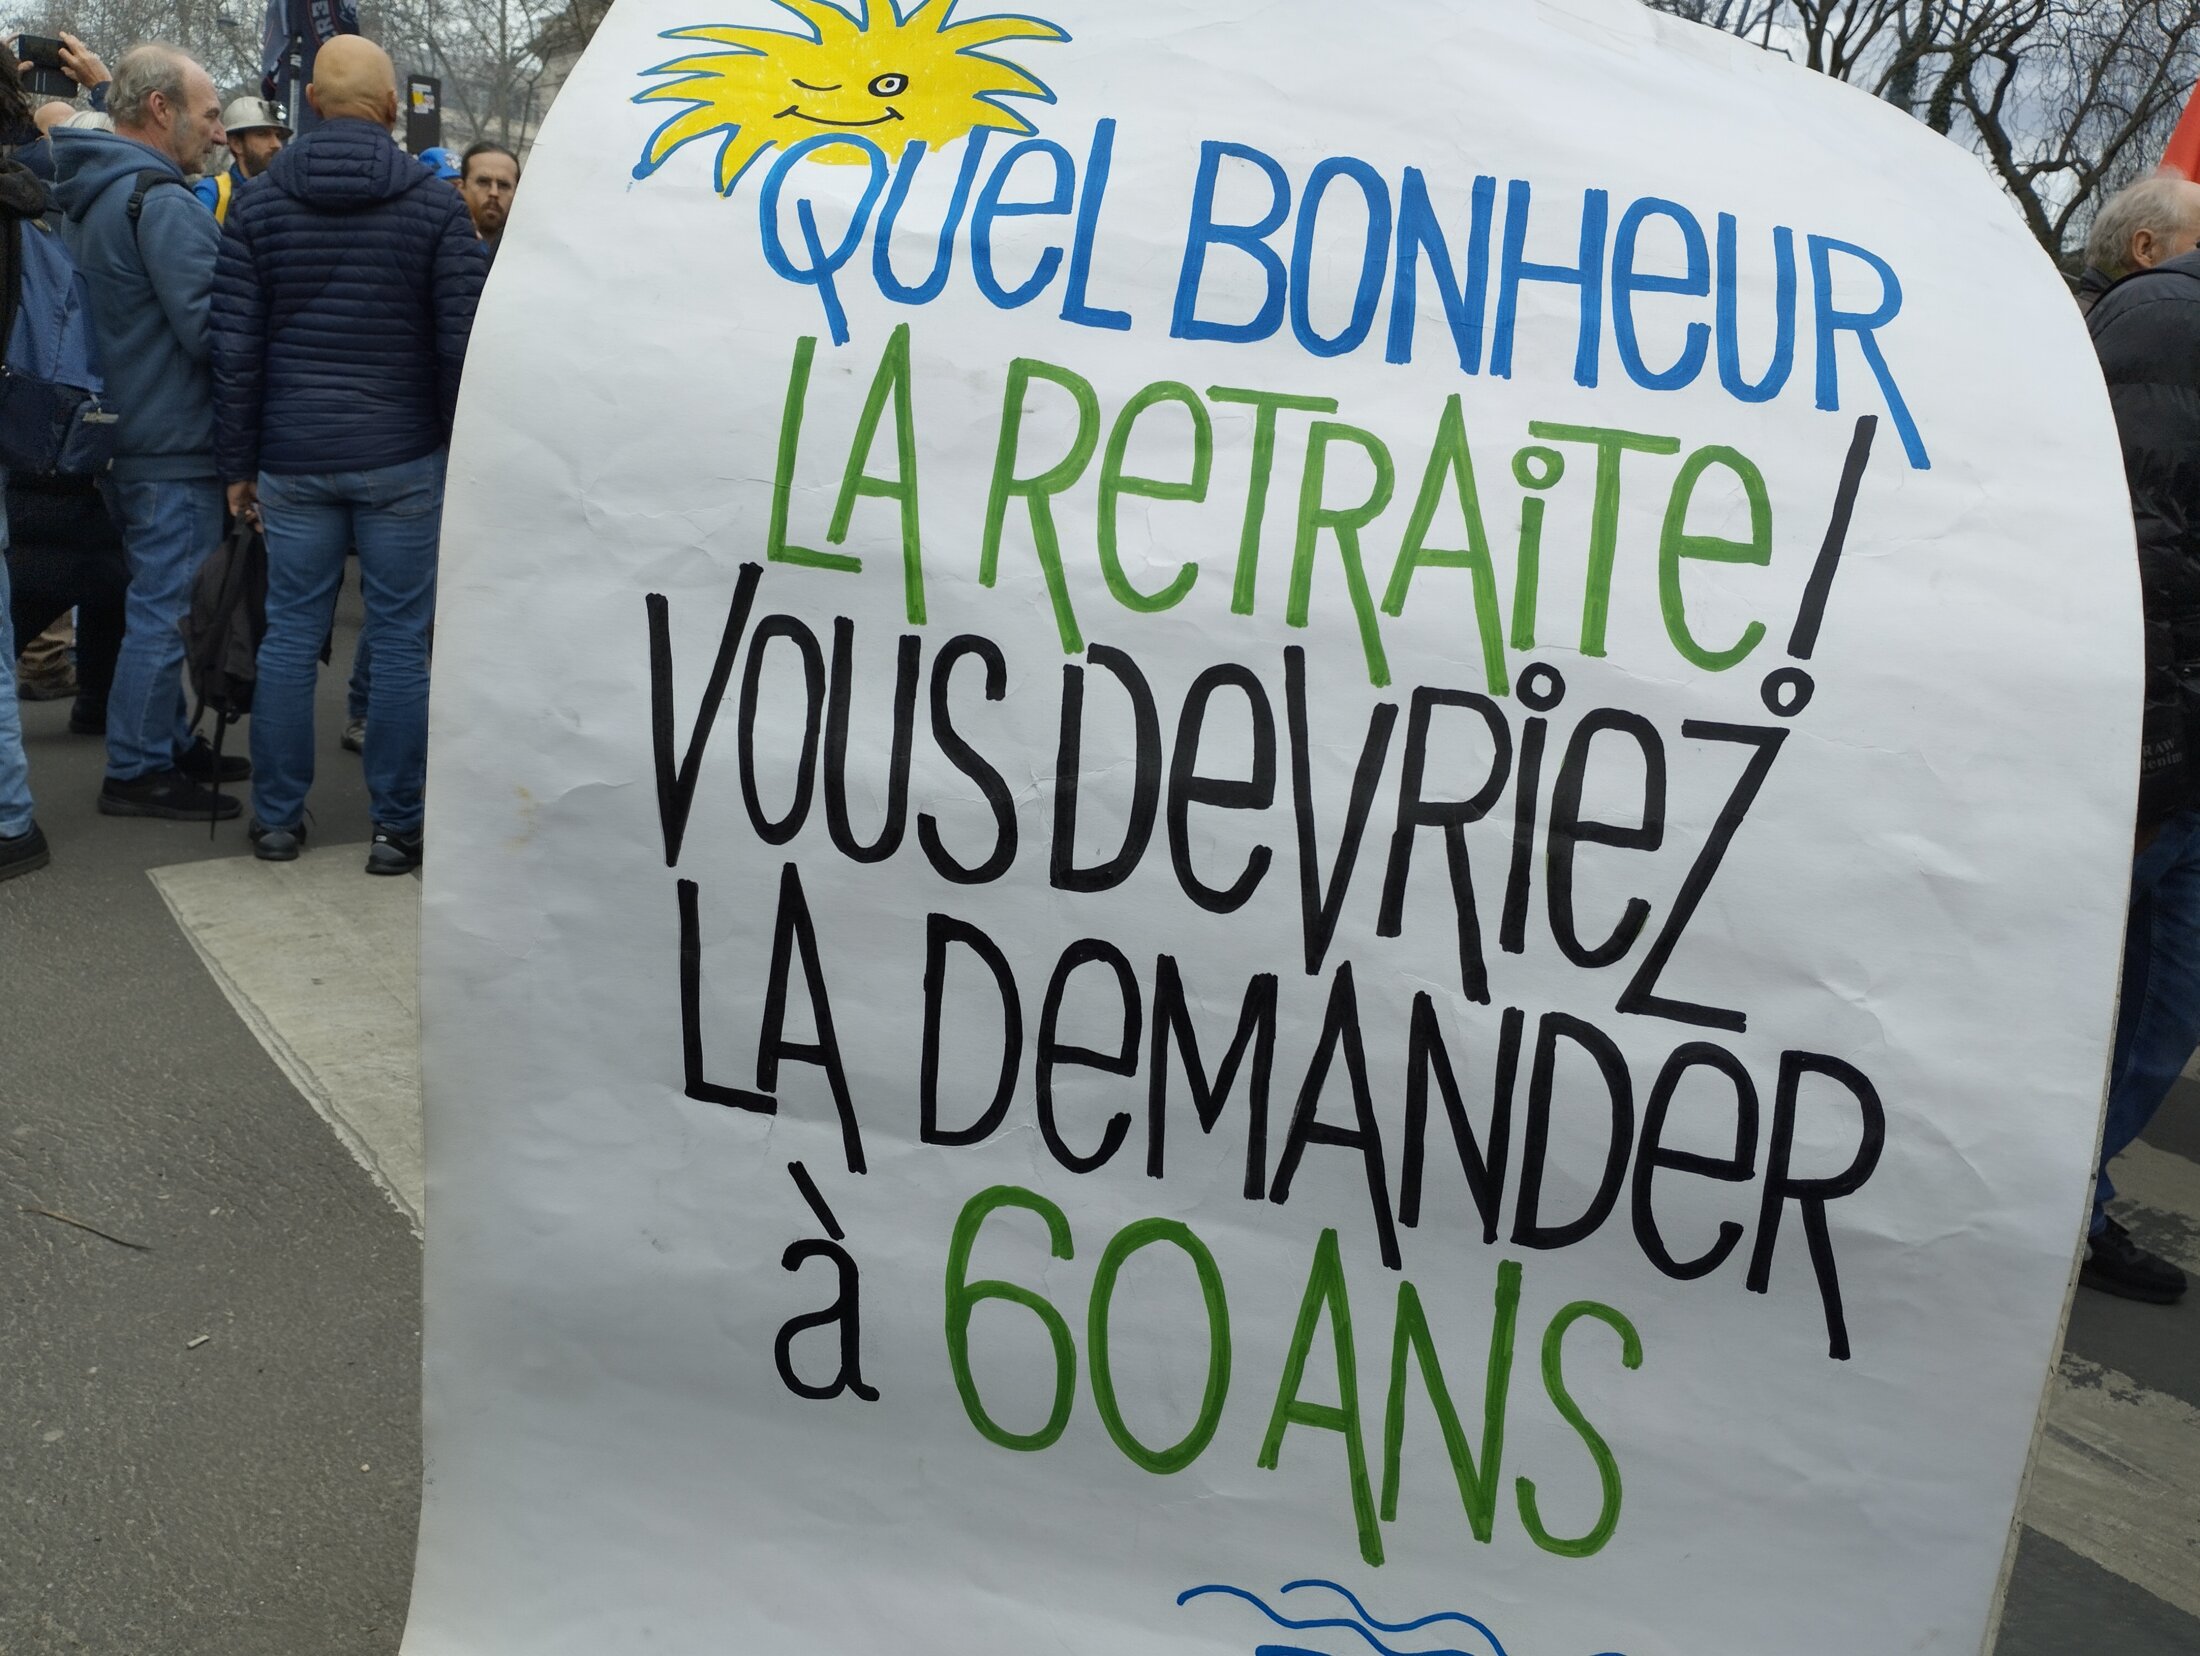 QUeL BONHeUR
LA ReTRAiTe !
VOUS DeVRieZ
LA DeMANDeR
à 60 ANS
RAW